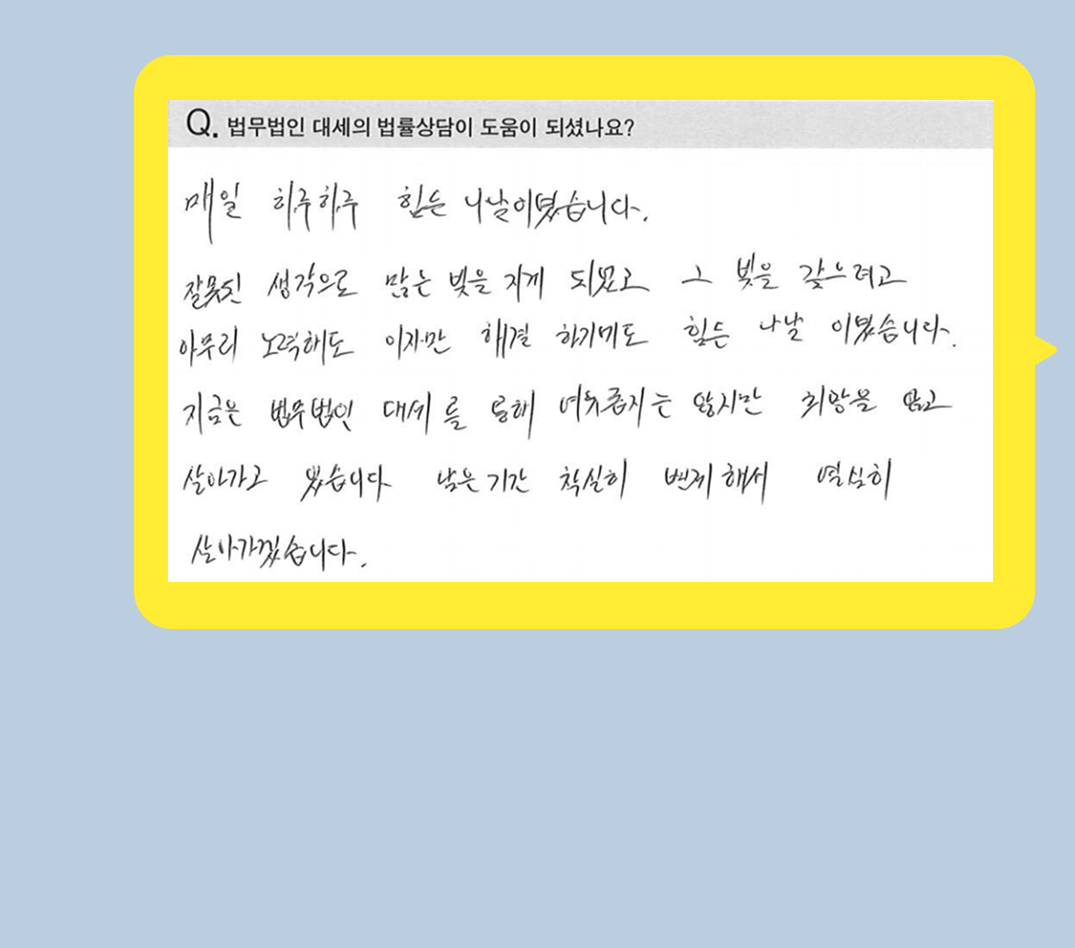 Q. 법무법인 대세의 법률상담이 도움이 되셨나요?
매일 하루하루 힘든 나날이였습니다.
잘못된 생각으로 많은 빚을 지게 되였고 그 빚을 갚으려고
아무리 노력해도 이자만 해결 하기에도 힘든 나날 이였습니다.
지금은 법무법인 대세 를 통해 여유롭지는 않지만 희망을 안고
살아가고 있습니다 남은 기간 착실히 변제 해서 열심히
살아가겠습니다.